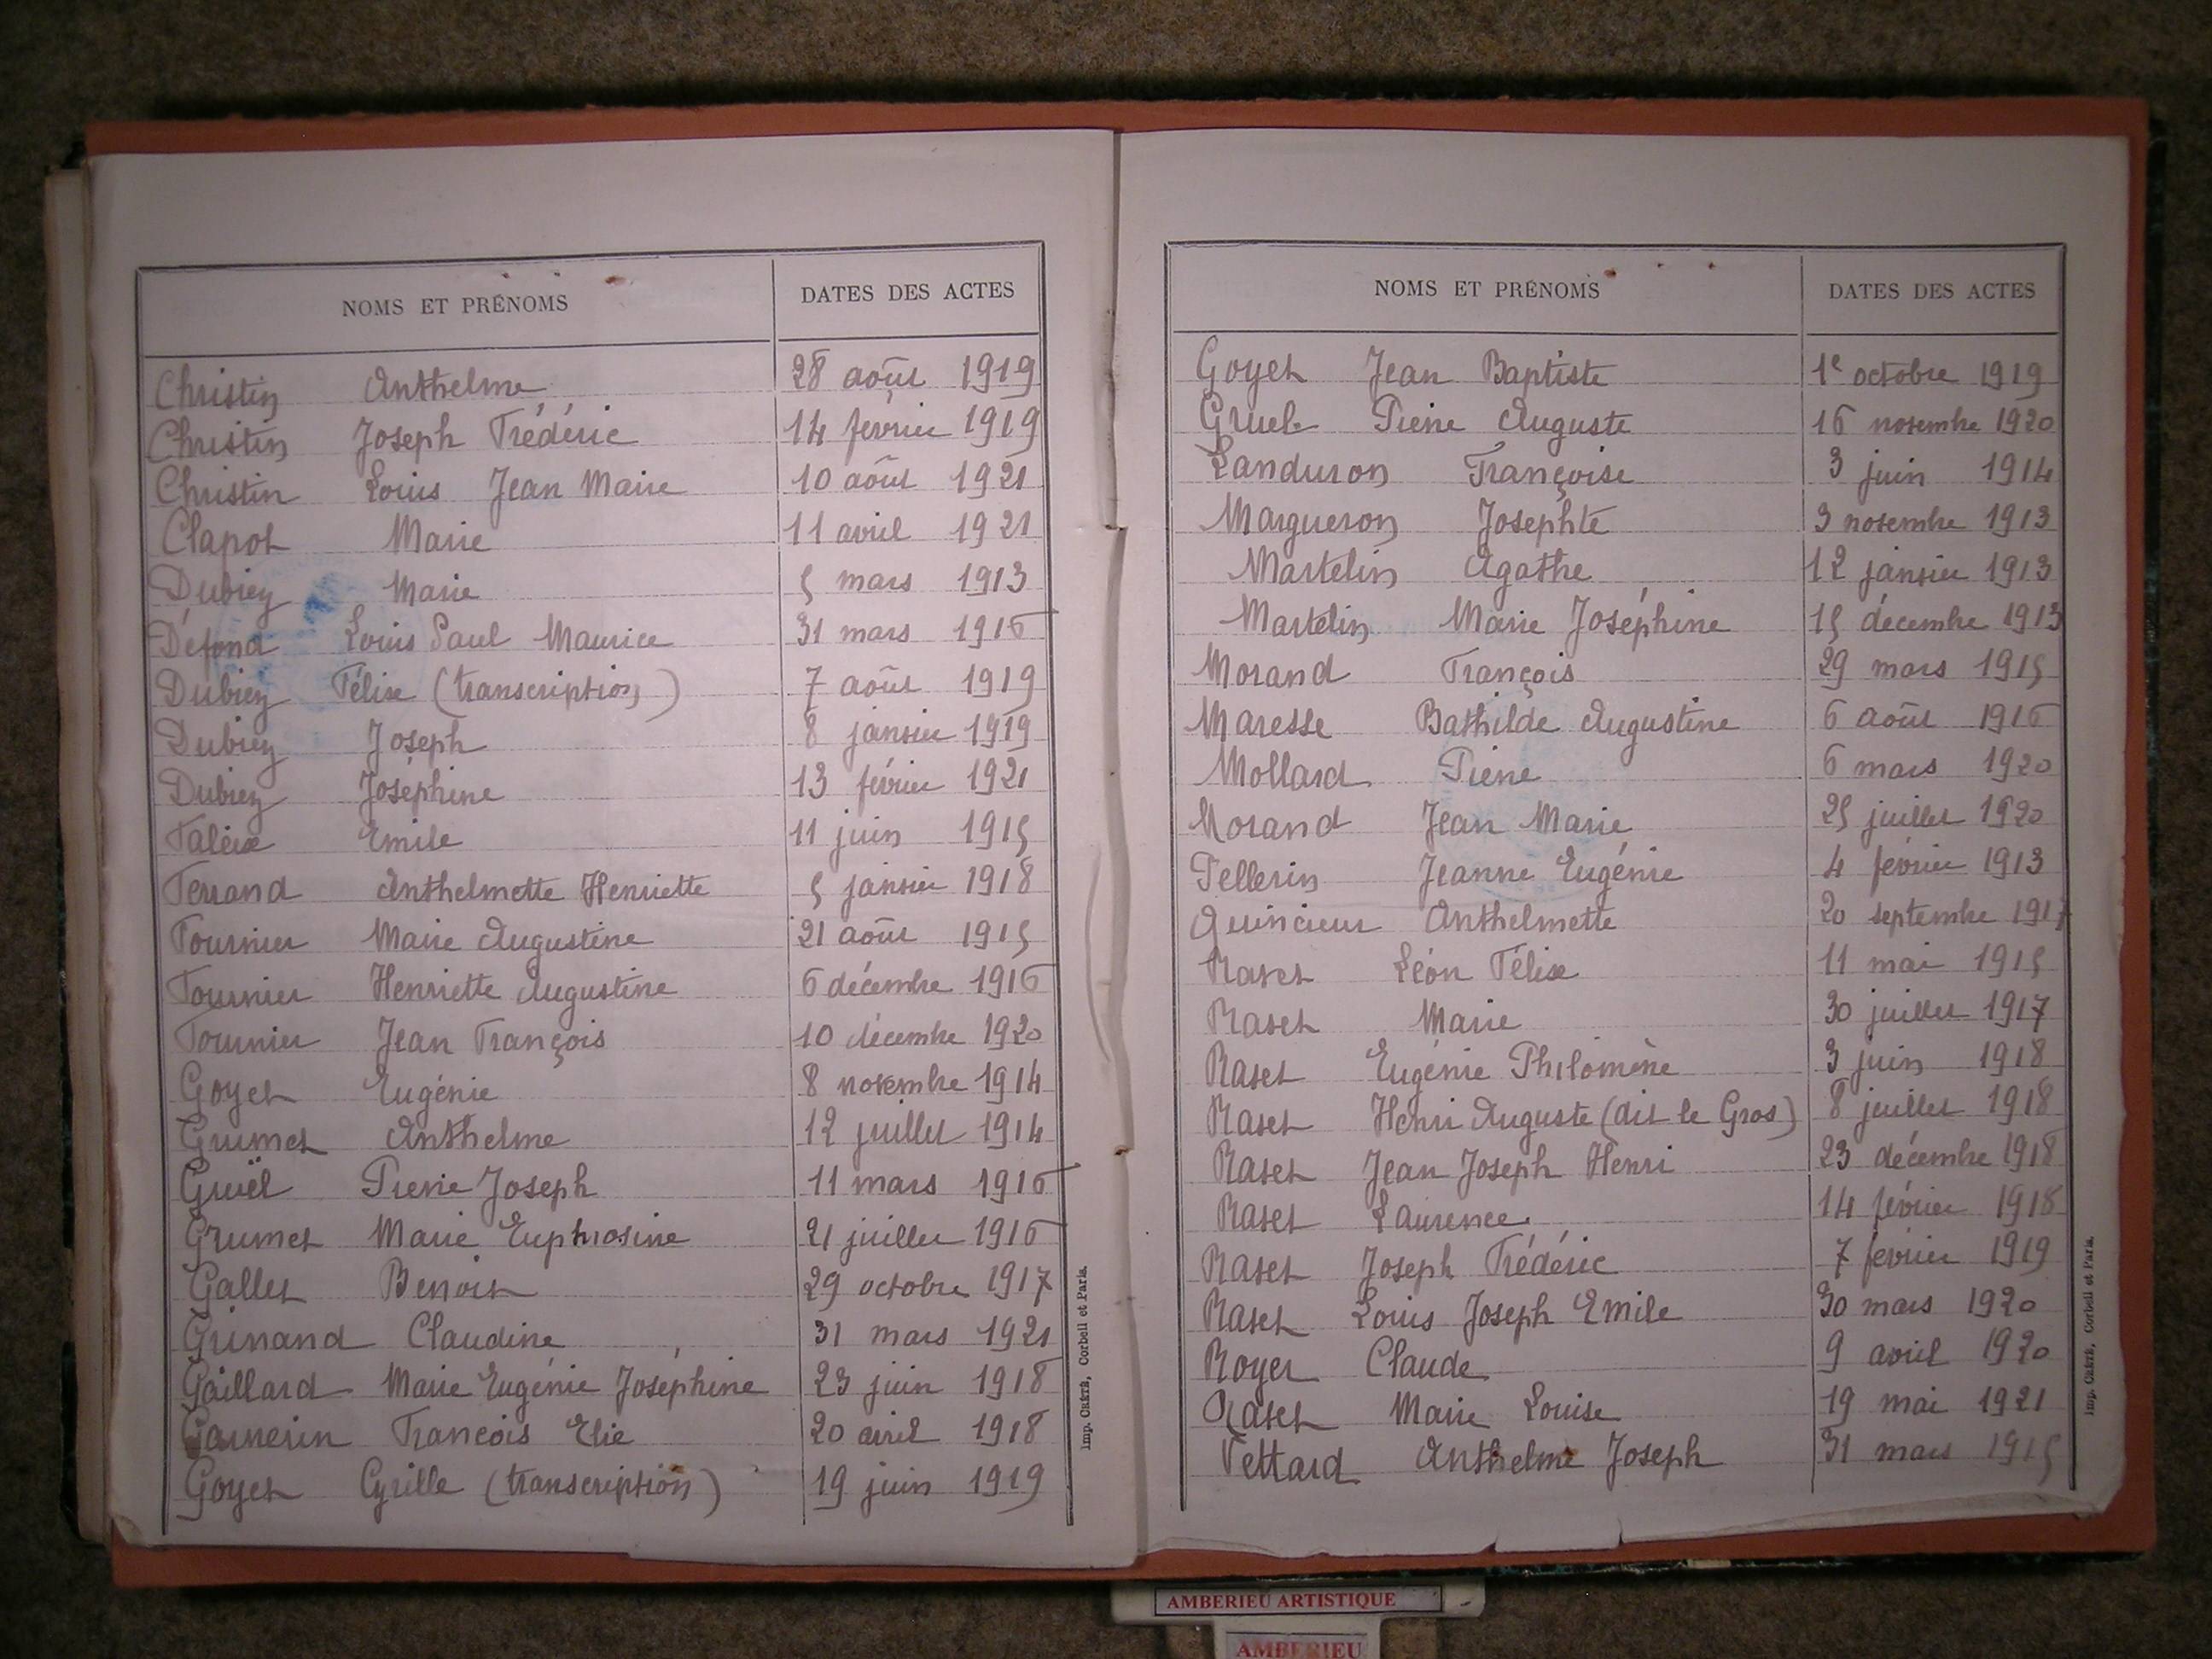 NOMS ET PRÉNOMS DATES DES ACTES
Christin Anthelme 28 août 1919
Christin Joseph Frédéric 14 février 1919
Christin Louis Jean Marie 10 août 1921
Clapot Marie 11 avril 1921
Dubiez Marie 5 mars 1913
Défond Louis Paul Maurice 31 mars 1916
Dubiez Félix (transcription) 7 août 1919
Dubiez Joseph 8 janvier 1919
Dubiez Joséphine 13 février 1921
Faleix Emile 11 juin 1915
Ferrand Anthelmette Henriette 5 janvier 1918
Fournier Marie Augustine 21 août 1915
Fournier Henriette Augustine 6 décembre 1916
Fournier Jean François 10 décembre 1920
Goyet Eugénie 8 novembre 1914
Grumet Anthelme 12 juillet 1914
Gruël Pierre Joseph 11 mars 1916
Grumet Marie Euphrosine 21 juillet 1916
Gallet Benoit 29 octobre 1917
Grinand Claudine 31 mars 1921
Gaillard Marie Eugénie Joséphine 23 juin 1918
Garnerin Francois Elie 20 avril 1918
Goyet Cyrille (transcription) 19 juin 1919
Imp. CRÉTÉ, Corbeil et Paris.
NOMS ET PRÉNOMS DATES DES ACTES
Goyet Jean Baptiste 1e octobre 1919
Gruel Pierre Auguste 16 novembre 1920
Landuron Françoise 3 juin 1914
Margueron Josephte 3 novembre 1913
Martelin Agathe 12 janvier 1913
Martelin Marie Joséphine 15 décembre 1913
Morand François 29 mars 1915
Maresse Bathilde Augustine 6 août 1916
Mollard Pierre 6 mars 1920
Morand Jean Marie 25 juillet 1920
Pellerin Jeanne Eugénie 4 février 1913
Quincieur Anthelmette 20 septembre 1917
Ravet Léon Félix 11 mai 1915
Ravet Marie 30 juillet 1917
Ravet Eugénie Philomène 3 juin 1918
Ravet Henri Auguste (dit le Gros) 8 juillet 1918
Ravet Jean Joseph Henri 23 décembre 1918
Ravet Laurence 14 février 1918
Ravet Joseph Frédéric 7 février 1919
Ravet Louis Joseph Emile 30 mars 1920
Royer Claude 9 avril 1920
Ravet Marie Louise 19 mai 1921
Vettard Anthelme Joseph 31 mars 1915
Imp. CRÉTÉ, Corbeil et Paris.
AMBERIEU ARTISTIQUE
AMBERIEU